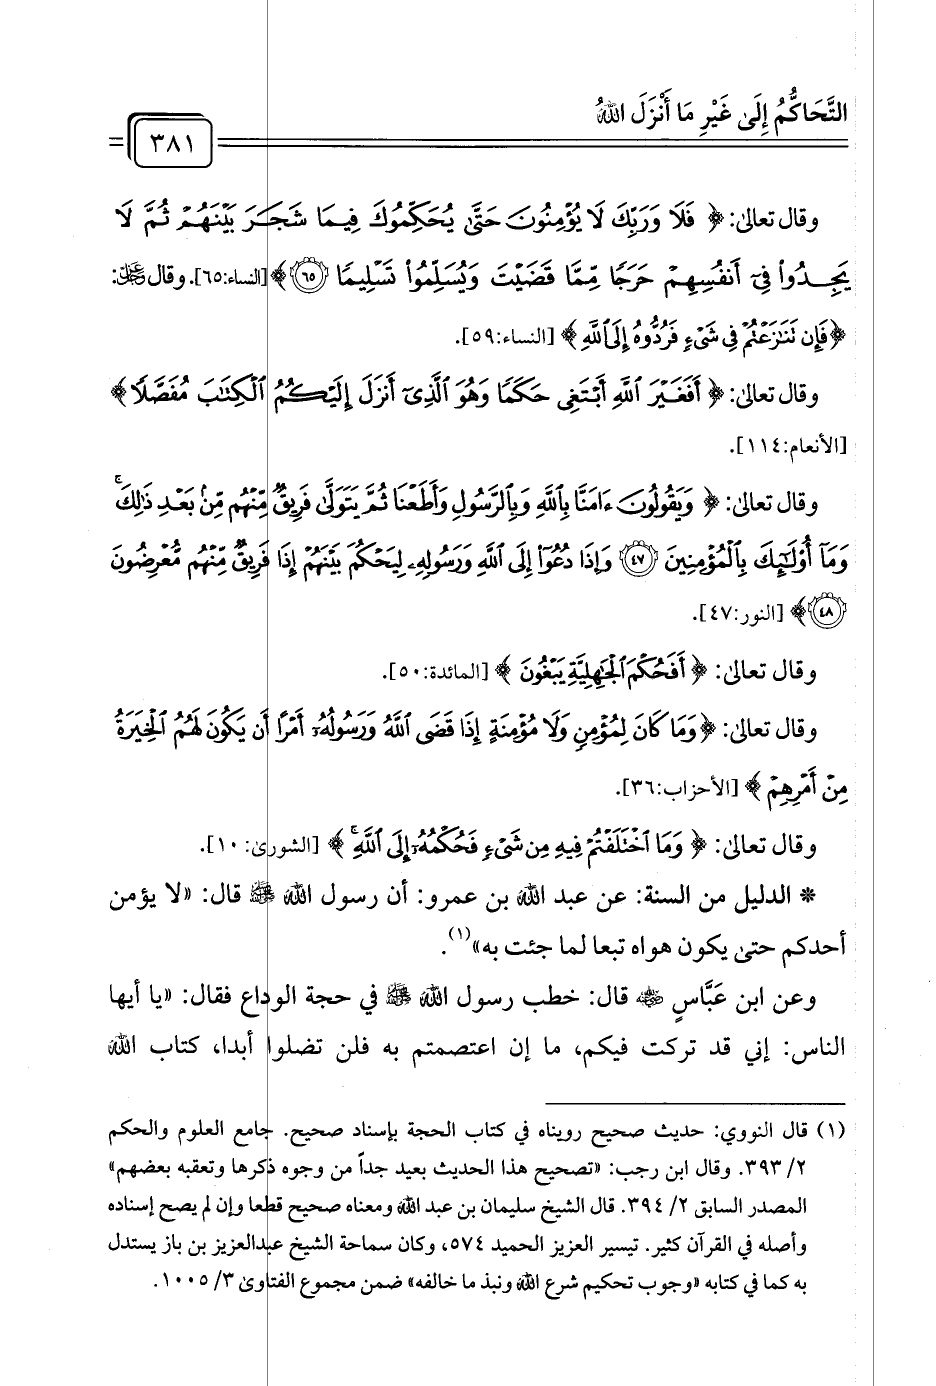 التَّحَاكُمُ إِلَىٰ غَيْرِ مَا أَنْزَلَ اللهُ
٣٨١
وقال تعالىٰ: ﴿ فَلَا وَرَبِّكَ لَا يُؤْمِنُونَ حَتَّىٰ يُحَكِّمُوكَ فِيمَا شَجَرَ بَيْنَهُمْ ثُمَّ لَا
يَجِدُوا۟ فِىٓ أَنفُسِهِمْ حَرَجًا مِّمَّا قَضَيْتَ وَيُسَلِّمُوا۟ تَسْلِيمًا ﴿٦٥﴾ ﴾ [النساء:٦٥]. وقال ﷿:
﴿ فَإِن تَنَٰزَعْتُمْ فِى شَىْءٍ فَرُدُّوهُ إِلَى ٱللَّهِ ﴾ [النساء:٥٩].
وقال تعالىٰ: ﴿ أَفَغَيْرَ ٱللَّهِ أَبْتَغِى حَكَمًا وَهُوَ ٱلَّذِىٓ أَنزَلَ إِلَيْكُمُ ٱلْكِتَٰبَ مُفَصَّلًا ﴾
[الأنعام:١١٤].
وقال تعالىٰ: ﴿ وَيَقُولُونَ ءَامَنَّا بِٱللَّهِ وَبِٱلرَّسُولِ وَأَطَعْنَا ثُمَّ يَتَوَلَّىٰ فَرِيقٌ مِّنْهُم مِّنۢ بَعْدِ ذَٰلِكَ ۚ
وَمَآ أُو۟لَٰٓئِكَ بِٱلْمُؤْمِنِينَ ﴿٤٧﴾ وَإِذَا دُعُوٓا۟ إِلَى ٱللَّهِ وَرَسُولِهِۦ لِيَحْكُمَ بَيْنَهُمْ إِذَا فَرِيقٌ مِّنْهُم مُّعْرِضُونَ
﴿٤٨﴾ ﴾ [النور:٤٧].
وقال تعالىٰ: ﴿ أَفَحُكْمَ ٱلْجَٰهِلِيَّةِ يَبْغُونَ ﴾ [المائدة:٥٠].
وقال تعالىٰ: ﴿ وَمَا كَانَ لِمُؤْمِنٍ وَلَا مُؤْمِنَةٍ إِذَا قَضَى ٱللَّهُ وَرَسُولُهُۥٓ أَمْرًا أَن يَكُونَ لَهُمُ ٱلْخِيَرَةُ
مِنْ أَمْرِهِمْ ﴾ [الأحزاب:٣٦].
وقال تعالىٰ: ﴿ وَمَا ٱخْتَلَفْتُمْ فِيهِ مِن شَىْءٍ فَحُكْمُهُۥٓ إِلَى ٱللَّهِ ۚ ﴾ [الشورىٰ:١٠].
* الدليل من السنة: عن عبد الله بن عمرو: أن رسول الله ﷺ قال: «لا يؤمن
أحدكم حتىٰ يكون هواه تبعا لما جئت به»(١).
وعن ابن عَبَّاسٍ قال: خطب رسول الله ﷺ في حجة الوداع فقال: «يا أيها
الناس: إني قد تركت فيكم، ما إن اعتصمتم به فلن تضلوا أبدا، كتاب الله
(١) قال النووي: حديث صحيح رويناه في كتاب الحجة بإسناد صحيح. جامع العلوم والحكم
٢/ ٣٩٣. وقال ابن رجب: «تصحيح هذا الحديث بعيد جداً من وجوه ذكرها وتعقبه بعضهم»
المصدر السابق ٢/ ٣٩٤. قال الشيخ سليمان بن عبد الله ومعناه صحيح قطعا وإن لم يصح إسناده
وأصله في القرآن كثير. تيسير العزيز الحميد ٥٧٤، وكان سماحة الشيخ عبدالعزيز بن باز يستدل
به كما في كتابه «وجوب تحكيم شرع الله ونبذ ما خالفه» ضمن مجموع الفتاوىٰ ٣/ ١٠٠٥.